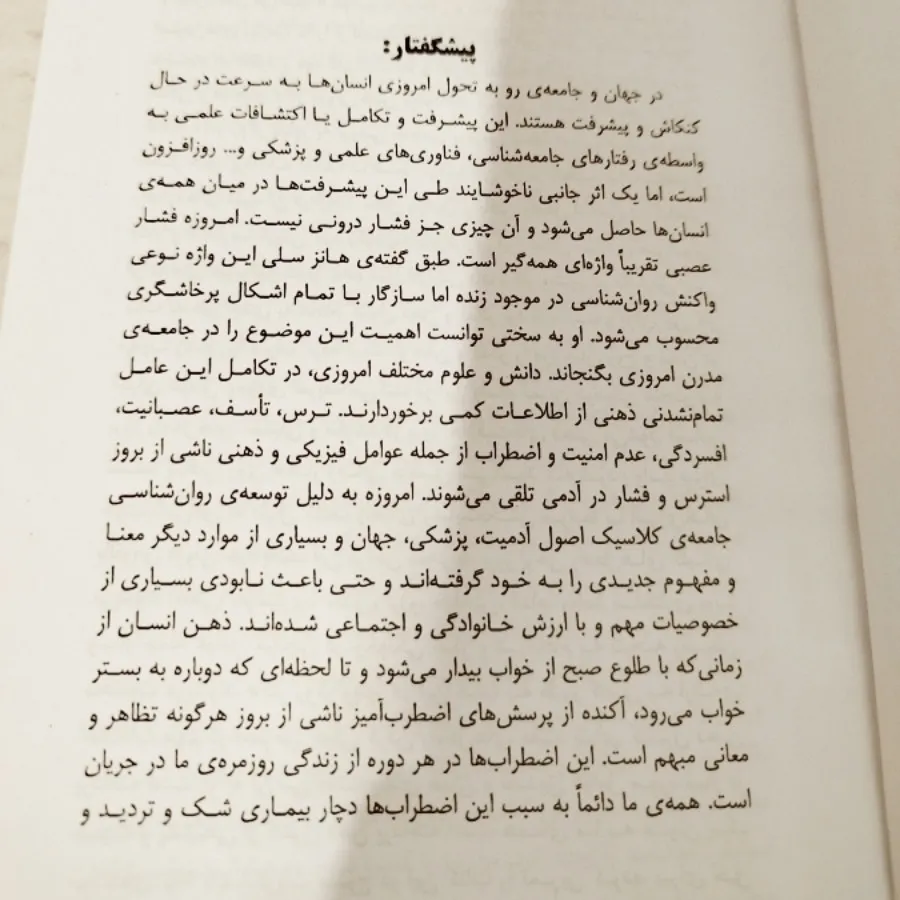 پیشگفتار:
در جهان و جامعه‌ی رو به تحول امروزی انسان‌ها به سرعت در حال
کنکاش و پیشرفت هستند. این پیشرفت و تکامل یا اکتشافات علمی به
واسطه‌ی رفتارهای جامعه‌شناسی، فناوری‌های علمی و پزشکی و... روزافزون
است، اما یک اثر جانبی ناخوشایند طی این پیشرفت‌ها در میان همه‌ی
انسان‌ها حاصل می‌شود و آن چیزی جز فشار درونی نیست. امروزه فشار
عصبی تقریباً واژه‌ای همه‌گیر است. طبق گفته‌ی هانز سلی این واژه نوعی
واکنش روان‌شناسی در موجود زنده اما سازگار با تمام اشکال پرخاشگری
محسوب می‌شود. او به سختی توانست اهمیت این موضوع را در جامعه‌ی
مدرن امروزی بگنجاند. دانش و علوم مختلف امروزی، در تکامل این عامل
تمام‌نشدنی ذهنی از اطلاعات کمی برخوردارند. ترس، تأسف، عصبانیت،
افسردگی، عدم امنیت و اضطراب از جمله عوامل فیزیکی و ذهنی ناشی از بروز
استرس و فشار در آدمی تلقی می‌شوند. امروزه به دلیل توسعه‌ی روان‌شناسی
جامعه‌ی کلاسیک اصول آدمیت، پزشکی، جهان و بسیاری از موارد دیگر معنا
و مفهوم جدیدی را به خود گرفته‌اند و حتی باعث نابودی بسیاری از
خصوصیات مهم و با ارزش خانوادگی و اجتماعی شده‌اند. ذهن انسان از
زمانی‌که با طلوع صبح از خواب بیدار می‌شود و تا لحظه‌ای که دوباره به بستر
خواب می‌رود، آکنده از پرسش‌های اضطرب‌آمیز ناشی از بروز هرگونه تظاهر و
معانی مبهم است. این اضطراب‌ها در هر دوره از زندگی روزمره‌ی ما در جریان
است. همه‌ی ما دائماً به سبب این اضطراب‌ها دچار بیماری شک و تردید و